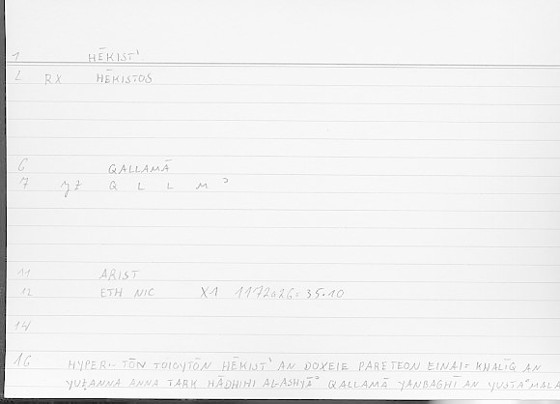 1 HĒKIST'
2 RX HĒKISTOS
6 QALLAMĀ
7 Q L L M
11 ARIST
12 ETH NIC X1 1172a26 = 35.10
14
16 HYPER TŌN TOIOYTŌN HĒKIST' AN DOXEIE PARETEON EINAI = KHALĪQ AN
YUẒANNA ANNA TARK HĀDHIHI AL-ASHYĀ' QALLAMĀ YANBAGHĪ AN YUSTA'MALA